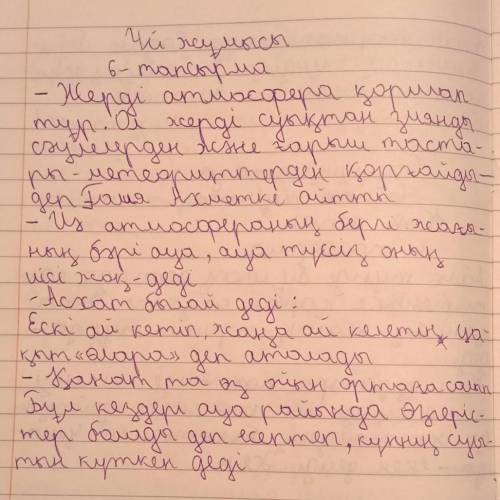 Үй жұмысы
6-тапсырма
- Жерді атмосфера қоршап
тұр. Ол жерді суықтан зиянды
сәулелерден және ғарыш таста-
ры-метеориттерден қорғайды-
деп Ғашя Ахметке айтты
- Из атмосфераның бергі жағы-
ның бәрі ауа, ауа түссіз оның
иісі жоқ-деді
-Асхат былай деді :
Ескі ай кетіп, жаңа ай келетің уа-
қыт «өлара» деп аталады
- Қанат та өз ойын ортаға салып
Бұл кездері ауа райында өзгеріс-
тер болады деп есептеп, күннің суы-
тын күткен деді